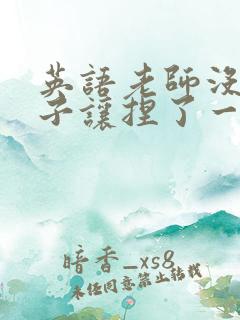 英語老師沒
子讓捏了一
暗香_xs8
未经同意禁止转载